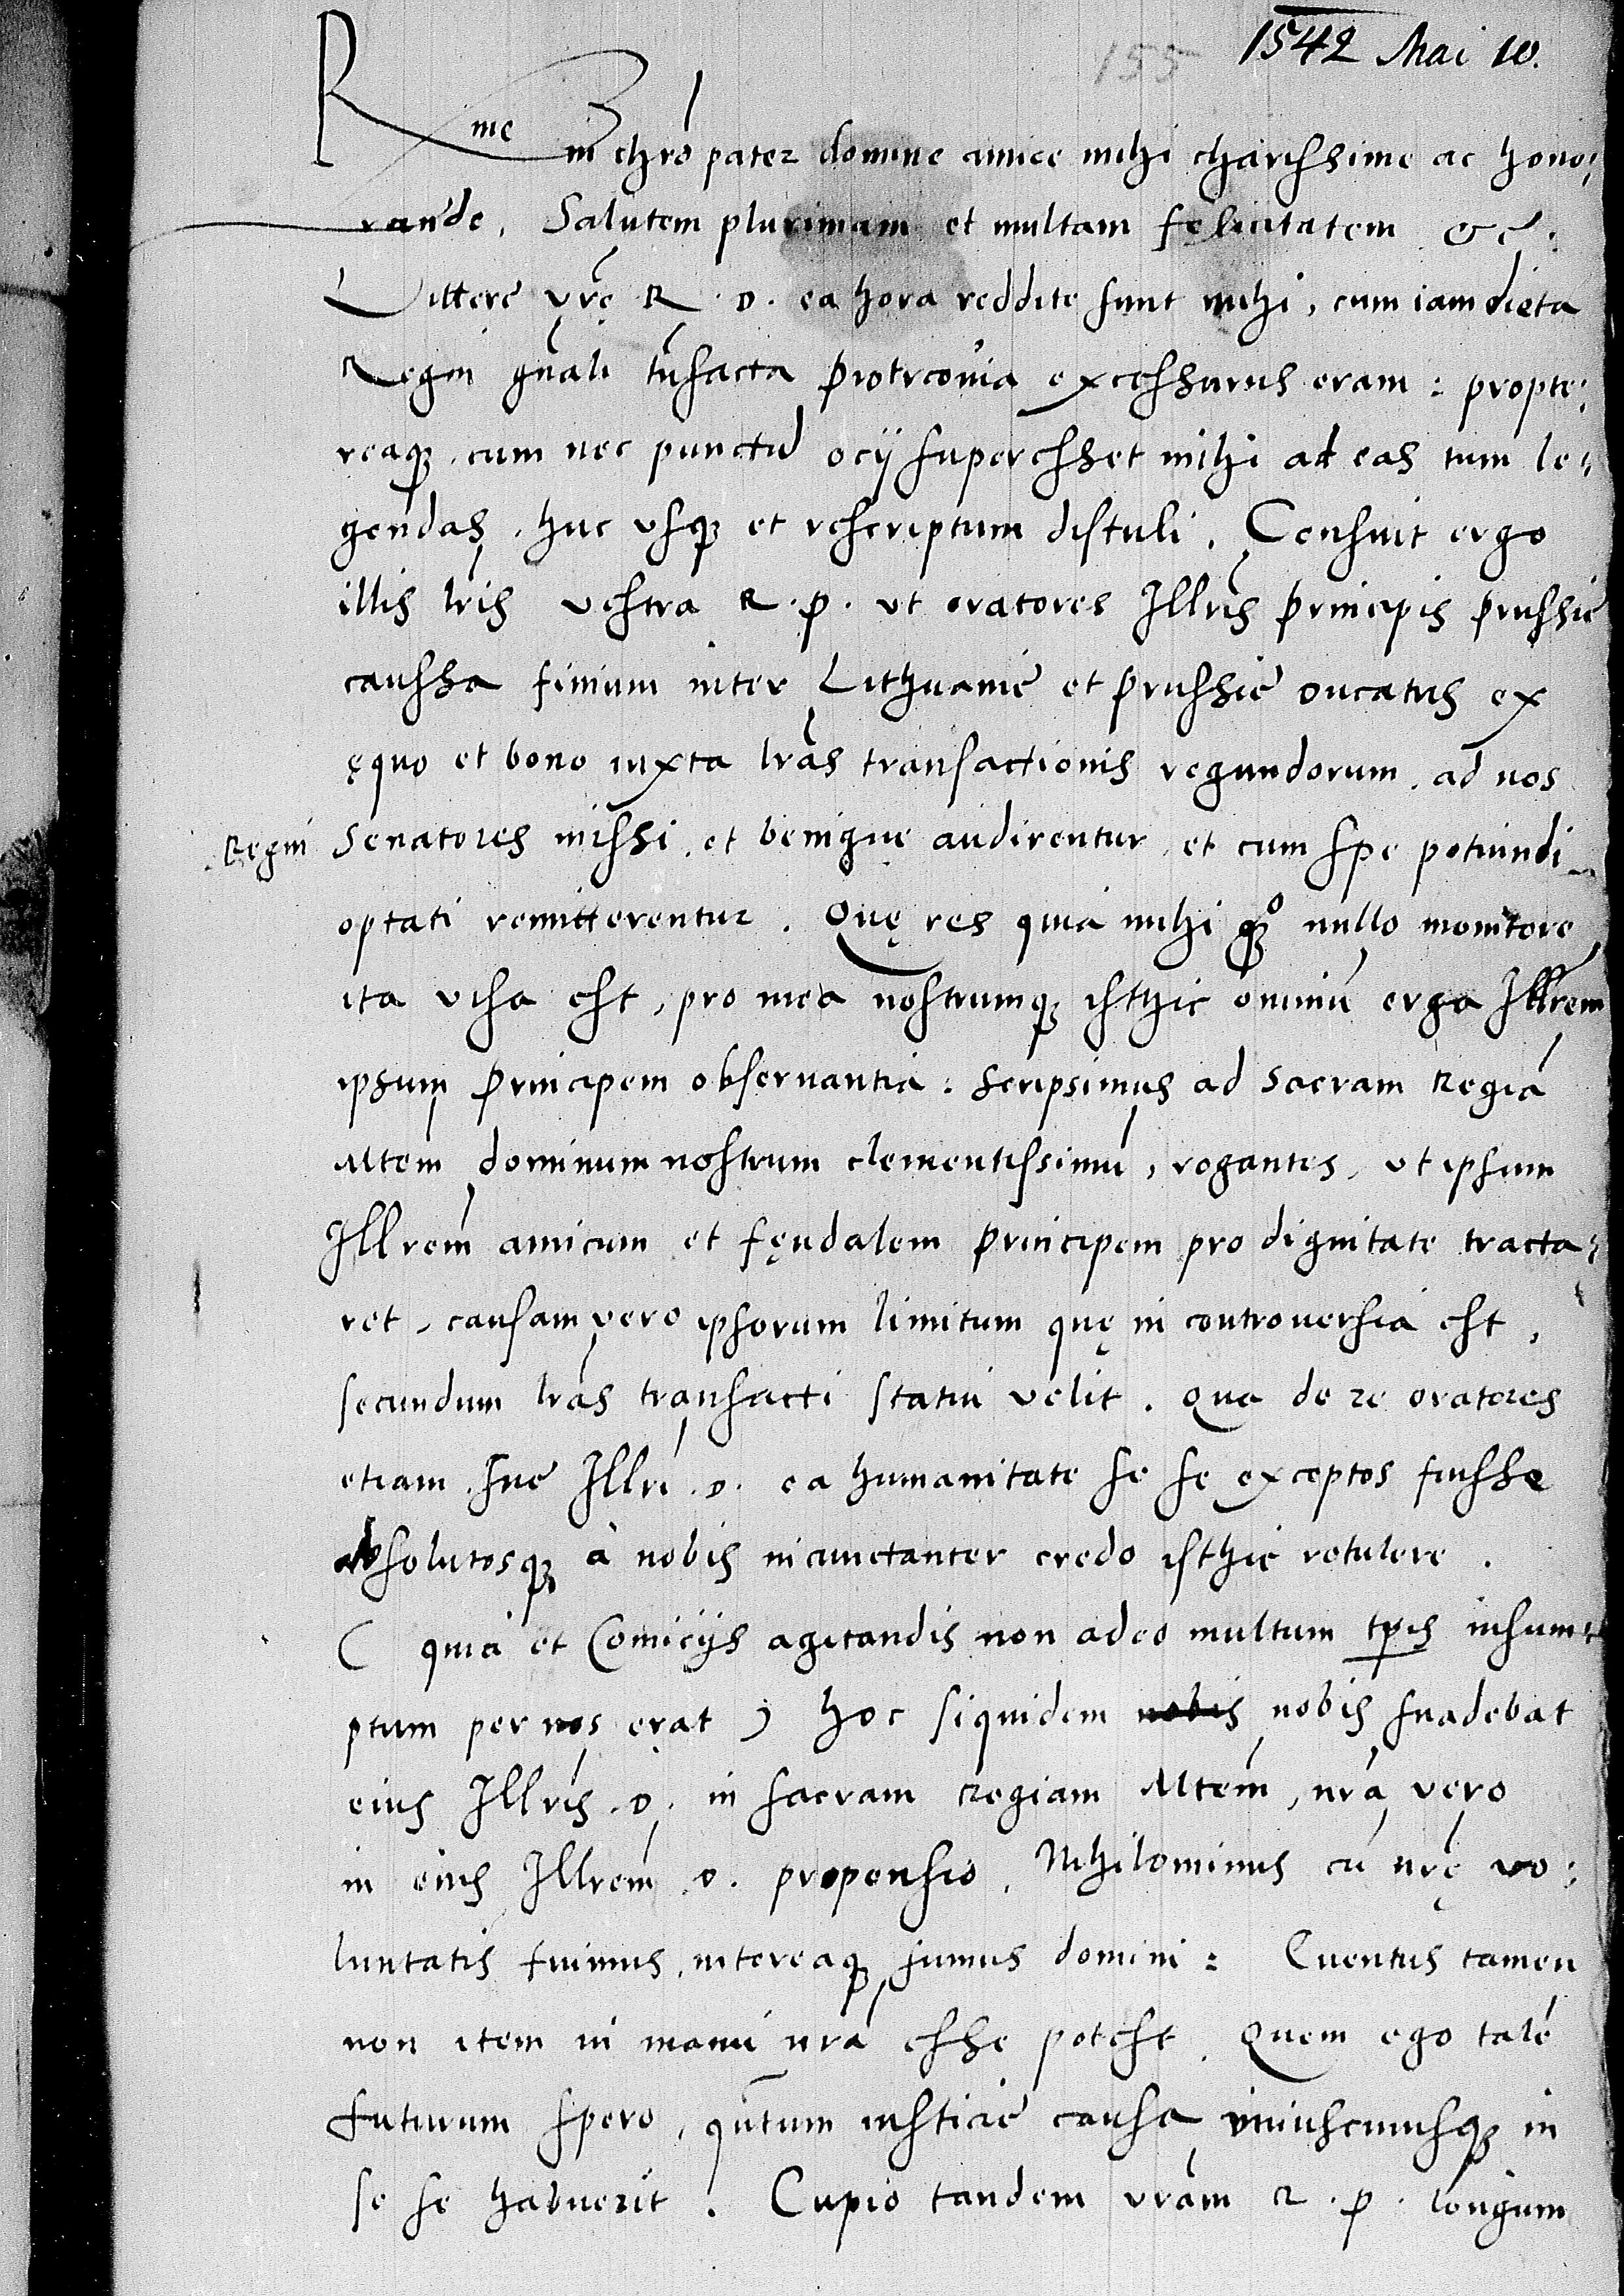 155 1542 Mai 10.
Rme in chro pater domine amice mihi charissime ac hono:
rande, Salutem plurimam et multam felicitatem &c:
Littere vre R. D. ea hora reddite sunt mihi, cum iam dieta
Regni gnali tnsacta Piotrcouia excessurus eram: propte:
reaq, cum nec punctu ocij superesset mihi ad eas tum le:
gendas, huc vsq et rescriptum distuli. Censuit ergo
illis lris vestra R. P. vt oratores Illris Principis Prussie
caussa finium inter Lithuanie et Prussie Ducatus ex
ęquo et bono iuxta lras transactionis regundorum, ad nos
Regni Senatores missi, et benigne audirentur, et cum spe potiundi
optati remitterentur. Quę res quia mihi qq nullo monitore
ita visa est, pro mea nostrumq isthic omniu erga Illrem
ipsum Principem obseruantia: scripsimus ad Sacram Regia
Mtem dominum nostrum clementissimu, rogantes, vt ipsum
Illrem amicum et fęudalem Principem pro dignitate tracta:
ret, causam vero ipsorum limitum quę in controuersia est,
secundum lras transacti statui velit. Qua de re oratores
etiam sue Illri. D. ea humanitate se se exceptos fuisse
absolutosq à nobis incunctanter credo isthic retulere.
( quia et Comicijs agitandis non adeo multum tpis insum:
ptum per nos erat ) hoc siquidem nobis nobis suadebat
eius Illris. D. in sacram Regiam Mtem, nra vero
in eius Illrem D. propensio. Nihilominus cu nrę vo:
luntatis fuimus, intereaq sumus domini: Euentus tamen
non item in manu nra esse potest. Quem ego tale
futurum spero, qntum iusticie causa vniuscuiusq in
se se habuerit. Cupio tandem vram R. P. longum